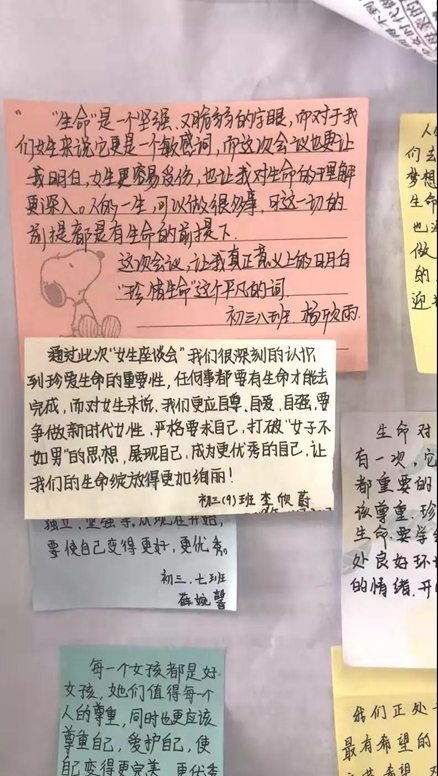 "生命"是一个坚强、又脆弱的字眼,而对于我
们女生来说它更是一个敏感词,而这次会议也更让
我明白,女生更容易受伤,也让我对生命的理解
更深入。人的一生,可以做很多事,可这一切的
前提都是有生命的前提下。
这次会议,让我真正意义上的明白
"珍惜生命"这个平凡的词.
初三八班 杨欣雨
通过此次"女生座谈会"我们很深刻的认识
到珍爱生命的重要性,任何事都要有生命才能去
完成,而对女生来说,我们更应自尊、自爱、自强,要
争做新时代女性,严格要求自己,打破"女子不
如男"的思想,展现自己,成为更优秀的自己,让
我们的生命绽放得更加绚丽!
初三(9)班 李欣蔚
独立、坚强等。从现在开始,
要使自己变得更好,更优秀。
初三.七班
薛婉
每一个女孩都是好
女孩,她们值得每个
人的尊重,同时也更应该
尊重自己,爱护自己,使
自己变得更完美,更优秀
们去
梦想
生命
也
做
的
迎
生命对
有一次,它
都重要的
该尊重、珍
生命.要学会
处良好环
的情绪.开
我们正处
最有希望的